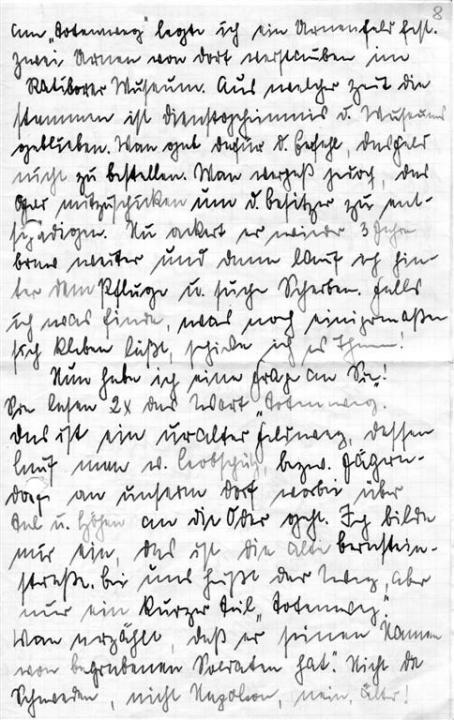 8
Am „Totenweg“ legte ich ein Urnenfeld fest.
Zwei Urnen von dort verstauben im
Ratiborer Museum. Aus welcher Zeit die
stammen ist Dienstgeheimnis d. Museums
geblieben. Man gab dafür d. Befehl, das Feld
nicht zu bestellen. Man vergaß jedoch, das
Geld mitzuschicken um d. Besitzer zu ent-
schädigen. Nu ackert er wieder 3 Jahre
brav weiter und dann lauf ich hin-
ter dem Pfluge u. suche Scherben. Falls
ich was finde, was noch einigermaßen
sich kleben läßt, schicke ich es Ihnen!
Nun habe ich eine Frage an Sie!
Sie lesen 2x das Wort „Totenweg.
Das ist ein uralter Feldweg, dessen
Lauf man v. Leobschütz, bezw. Jägern-
dorf an unserm Dorf vorbei über
Tal u. Höhen an die Oder geht. Ich bilde
mir ein, das ist die alte Bernstein-
straße. Bei uns heißt der Weg, aber
nur ein kurzer Teil „Totenweg“.
Man erzählt, daß er seinen Namen
von begrabenen Soldaten hat“. Nicht die
Schweden, nicht Napoleon, nein, älter!